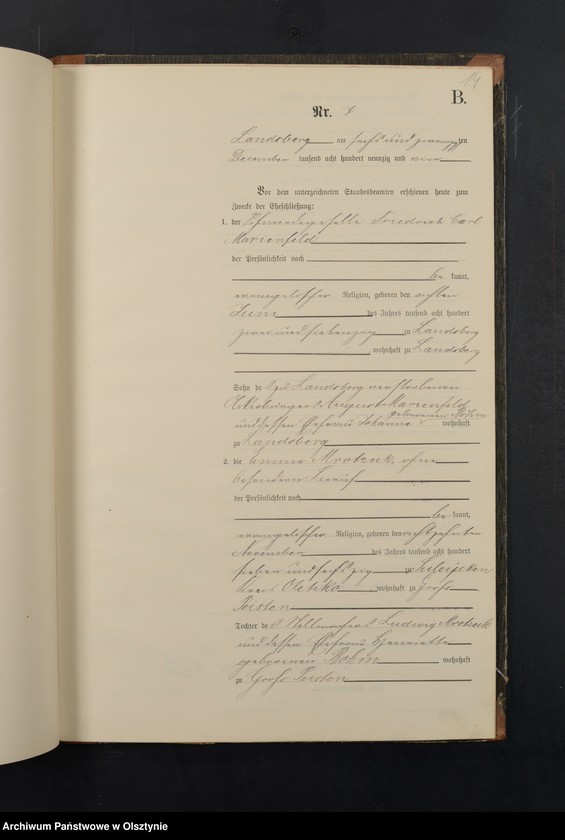 14
B.
Nr. 7
Landsberg am sechs und zwanzigsten
December tausend acht hundert neunzig und vier
Vor dem unterzeichneten Standesbeamten erschienen heute zum
Zwecke der Eheschließung:
1. der Schmiedegeselle Friedrich Carl
Marienfeld
der Persönlichkeit nach
be kannt,
evangelischer Religion, geboren den achten
Juni des Jahres tausend acht hundert
zwei und siebenzig zu Landsberg
wohnhaft zu Landsberg
Sohn des zu Landsberg verstorbenen
August Marienfeld
und dessen Ehefrau Johanne geborenen Böhm wohnhaft
zu Landsberg
2. die Emma Mrotzek, ohne
besonderen Beruf
der Persönlichkeit nach
be kannt,
evangelischer Religion, geboren den achtzehnten
November des Jahres tausend acht hundert
sieben und sechszig zu
Kreis Oletzko wohnhaft zu Groß
Peisten
Tochter des Stellmachers Ludwig Mrotzek
und dessen Ehefrau Henriette
geborenen Böhm wohnhaft
zu Groß Peisten
Archiwum Państwowe w Olsztynie